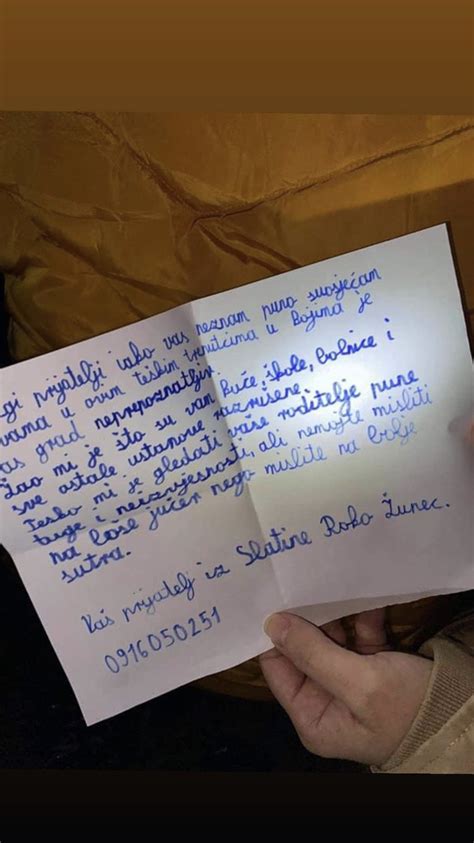 gi prijatelji iako vas neznam puno suosjećam
vama u ovim teškim trenutcima u kojima je
as grad neprepoznatljiv.
Žao mi je što su vam kuće, škole, bolnice i
sve ostale ustanove razrušene.
Teško mi je gledati vaše roditelje pune
tuge i neizvjesnosti, ali nemojte misliti
na loše jučer nego mislite na bolje
sutra.
Vaš prijatelj iz Slatine Roko Žunec.
0916050251